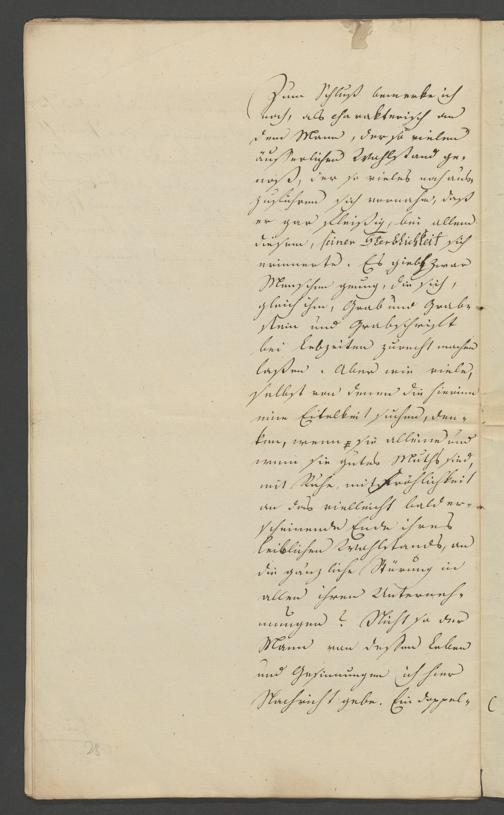 Zum Schluß bemerke ich
noch, als charakteristisch an
dem Mann, der so vielen
äusserlichen Wohlstand ge-
noß, der so vieles noch aus-
zuführen sich vornahm, daß
er gar fleißig, bei allem
diesem, seiner Sterblichkeit sich
erinnerte. Es giebt zwar
Menschen genug, die sich,
gleich ihm, Grab und Grab-
stein und Grabschrift
bei Lebzeiten zurecht machen
lassen. Aber wie viele,
selbst von denen die hierinn
eine Eitelkeit suchen, den-
ken, wenn sie alleine und
wenn sie gutes Muths sind,
mit Ruhe, mit Fröhlichkeit
an das vielleicht bald er-
scheinende Ende ihres
leiblichen Wohlstands, an
die gänzliche Störung in
allen ihren Unterneh-
mungen? Nicht so der
Mann von dessen Leben
und Gesinnungen ich hier
Nachricht gebe. Ein doppel-
28